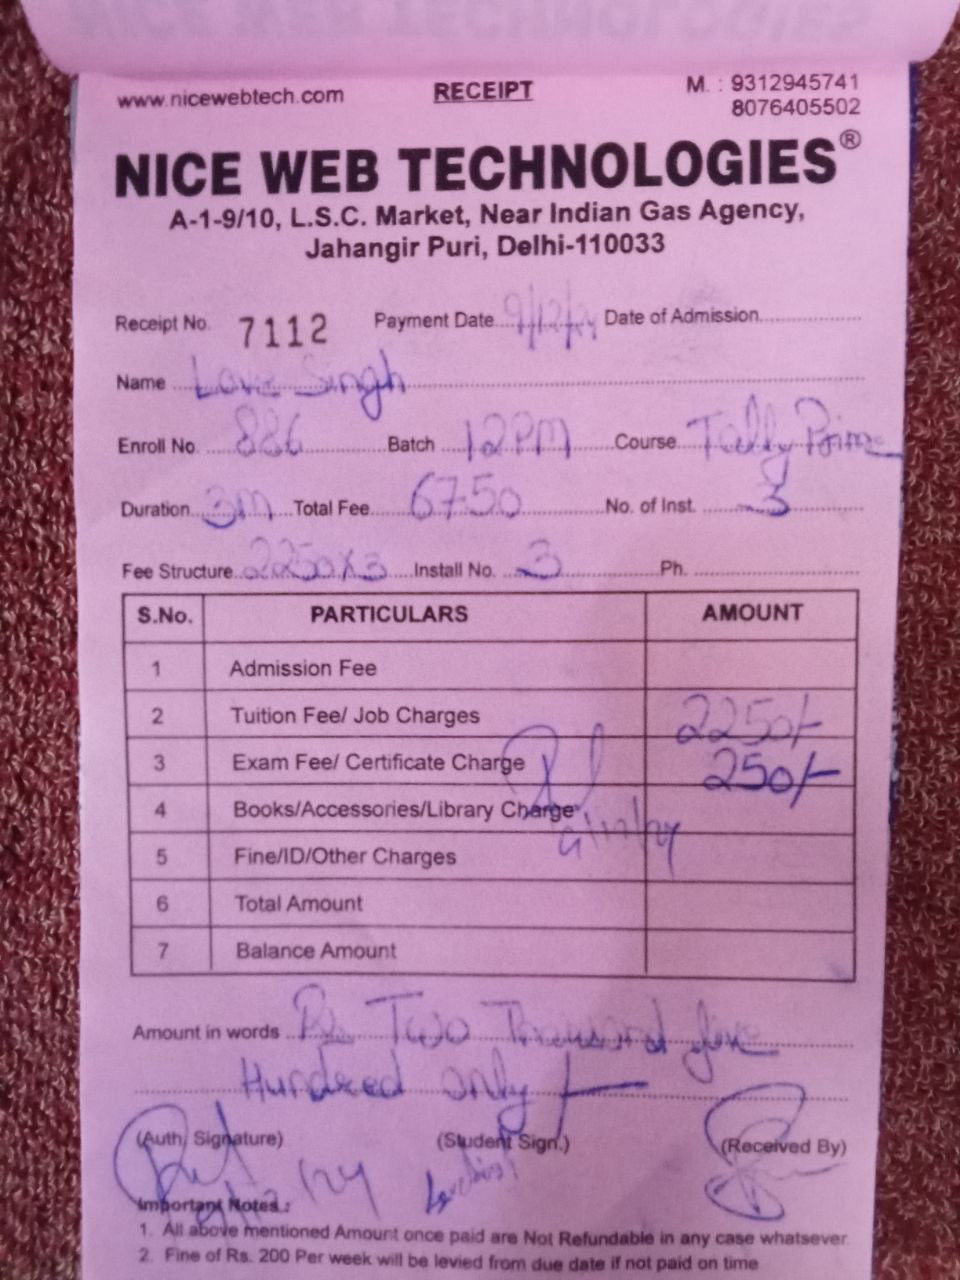 www.nicewebtech.com RECEIPT M. : 9312945741
8076405502
NICE WEB TECHNOLOGIES®
A-1-9/10, L.S.C. Market, Near Indian Gas Agency,
Jahangir Puri, Delhi-110033
Receipt No. 7112 Payment Date 9/12/24 Date of Admission
Name Love Singh
Enroll No. 886 Batch 12PM Course Tally Prime
Duration 3M Total Fee 6750 No. of Inst. 3
Fee Structure 2250x3 Install No. 3 Ph.
S.No. PARTICULARS AMOUNT
1 Admission Fee
2 Tuition Fee/ Job Charges 2250/-
3 Exam Fee/ Certificate Charge 250/-
4 Books/Accessories/Library Charge
9/12/24
5 Fine/ID/Other Charges
6 Total Amount
7 Balance Amount
Amount in words Rs Two Thousand five
Hundred only
(Auth. Signature) (Student Sign.) (Received By)
Important Notes :
1. All above mentioned Amount once paid are Not Refundable in any case whatsever.
2. Fine of Rs. 200 Per week will be levied from due date if not paid on time